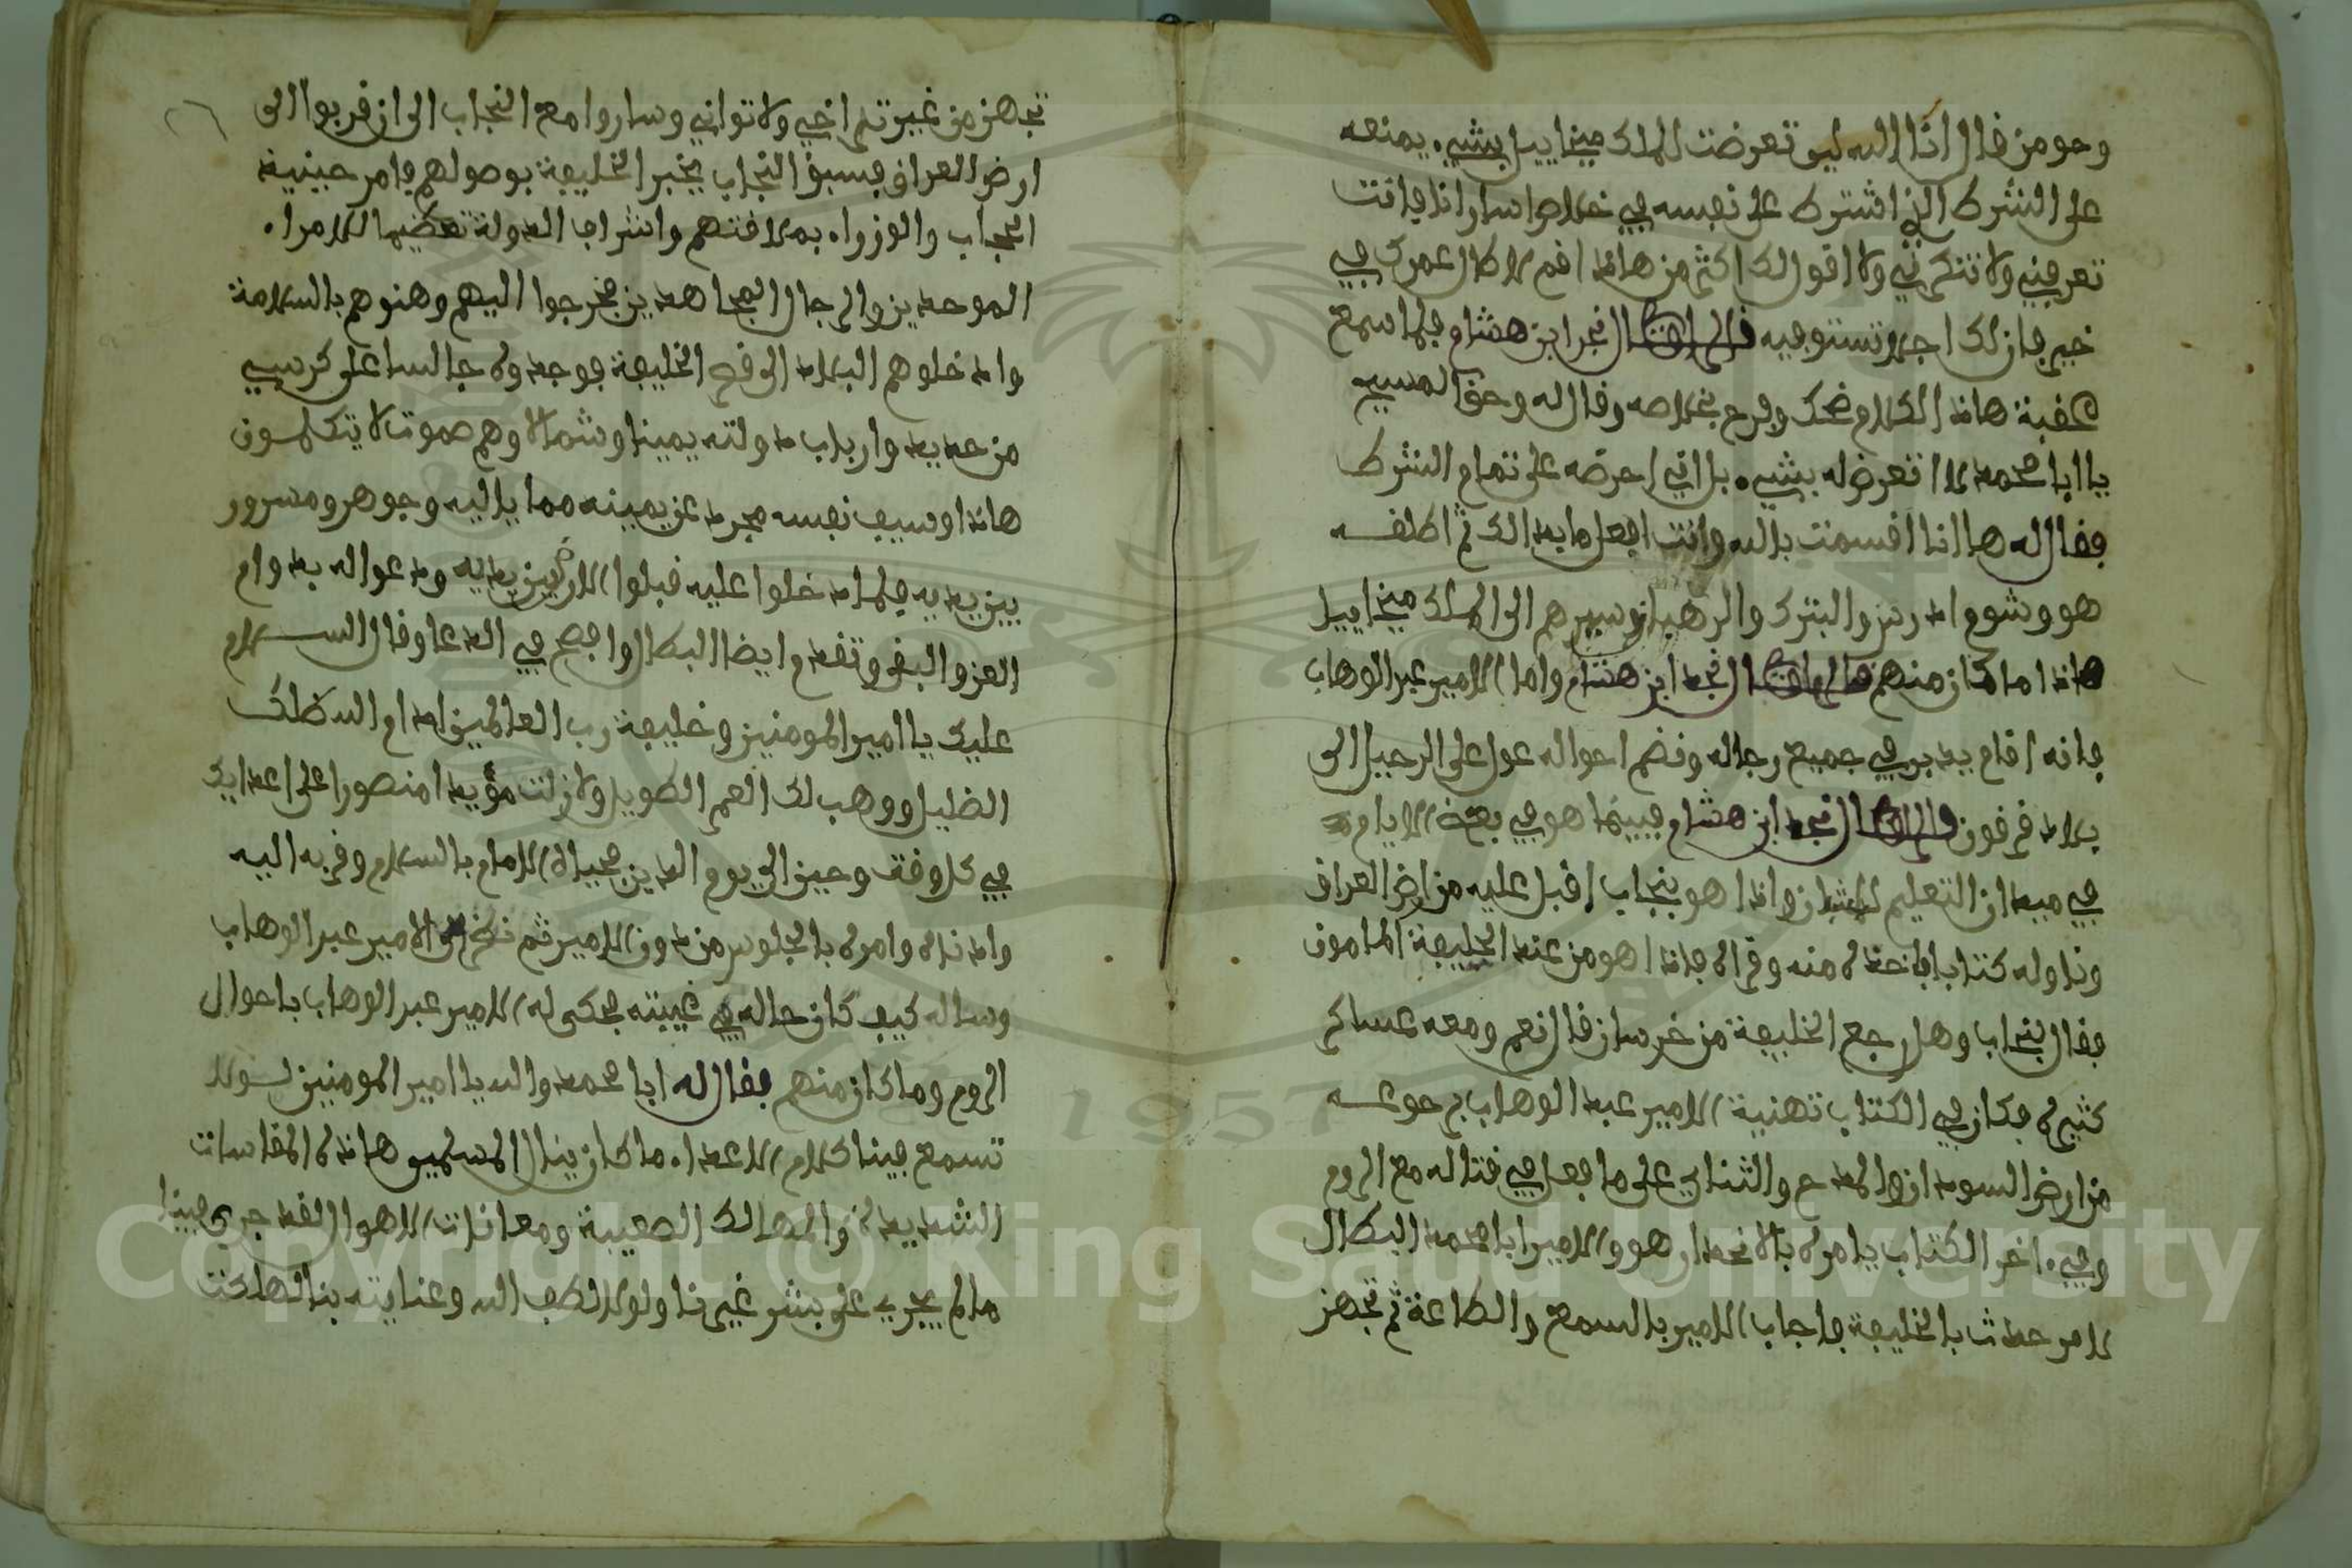 وحومن قال انا الله ليو تعرضت للملك ميخاييل بشيء يمنعه
على الشرك الذي اشترك على نفسه في خلاص اسارانا فانت
تعرفني ولا تنكرني ولا اقولك اكثر من هاذا افم لا طال عمرك في
خير فان لك اجلا تستوفيه قال الراوي نجد ابن هشام فلما سمع
عقبة هاذا الكلام ضحك وفرح بخلاصه وقال له وحق المسيح
يا ابا محمد لا اتعرض له بشيء بل اني احرضه على تمام الشرك
فقال له ها انا اقسمت بالله وانت افعل ما بدا لك ثم اطلقه
هو وشوم ادرس والبترك والرهبان وسيرهم الى الملك ميخاييل
هاذا ما كان منهم قال الراوي نجد ابن هشام واما الامير عبد الوهاب
فانه اقام يدبر في جميع رجاله وقضا احواله عول على الرحيل الى
بلاد قرقون قال الراوي نجد ابن هشام فبينما هو في بعض الايام
في ميدان التعليم للشبان واذا هو بنجاب اقبل عليه من ارض العراق
وناوله كتابا فاخذه منه وقراه فاذا هو من عند الخليفة المامون
فقال للنجاب وهل رجع الخليفة من خرسان قال نعم ومعه عساكر
كثيره فكان في الكتاب تهنية الامير عبد الوهاب برجوعه
من ارض السودان والمدح والثناي على ما فعل في قتاله مع الروم
وفي اخر الكتاب يامره بالانحدار هو والامير ابا محمد البطال
لامر حدث بالخليفة فاجاب الامير بالسمع والطاعة ثم تجهز
تجهز من غير تراخي ولا تواني وساروا مع النجاب الى ان قربوا الى
ارض العراق فسبق النجاب يخبر الخليفة بوصولهم فامر حينيذ
الحجاب والوزراء بملاقتهم واشراف الدولة تعظيما للامراء
الموحدين والرجال المجاهدين فخرجوا اليهم وهنوهم بالسلامة
وادخلوهم البلاد الى قصر الخليفة فوجدوه جالسا على كرسي
من حديد وارباب دولته يمينا وشمالا وهم صموت لا يتكلمون
هاذا وسيف نفسه مجرد عن يمينه مما يليه وجوهر ومسرور
بين يديه فلما دخلوا عليه قبلوا الارض بين يديه ودعوا له بدوام
العز والبقى وتقدم ايضا البطال وافصح في الدعا وقال السلام
عليك يا امير المومنين وخليفة رب العالمين ادام الله ظلك
الظليل ووهب لك العمر الطويل ولا زلت مؤيدا منصورا على اعدايك
في كل وقت وحين الى يوم الدين فحياه الامام بالسلام وقربه اليه
وادناه وامره بالجلوس من دون الامير ثم نظر الى الامير عبد الوهاب
وساله كيف كان حاله في غيبته فحكى له الامير عبد الوهاب باحوال
الروم وما كان منهم فقال له ابا محمد والله يا امير المومنين لولا
تسمع فينا كلام الاعداء ما كان ينال المسلمين هاذه المقاسات
الشديدة والمهالك الصعيبة ومعانات الاهوا لقد جرى فينا
ما لم يجري على بشر غيرنا ولولا لطف الله وعنايته بنا لهلكت